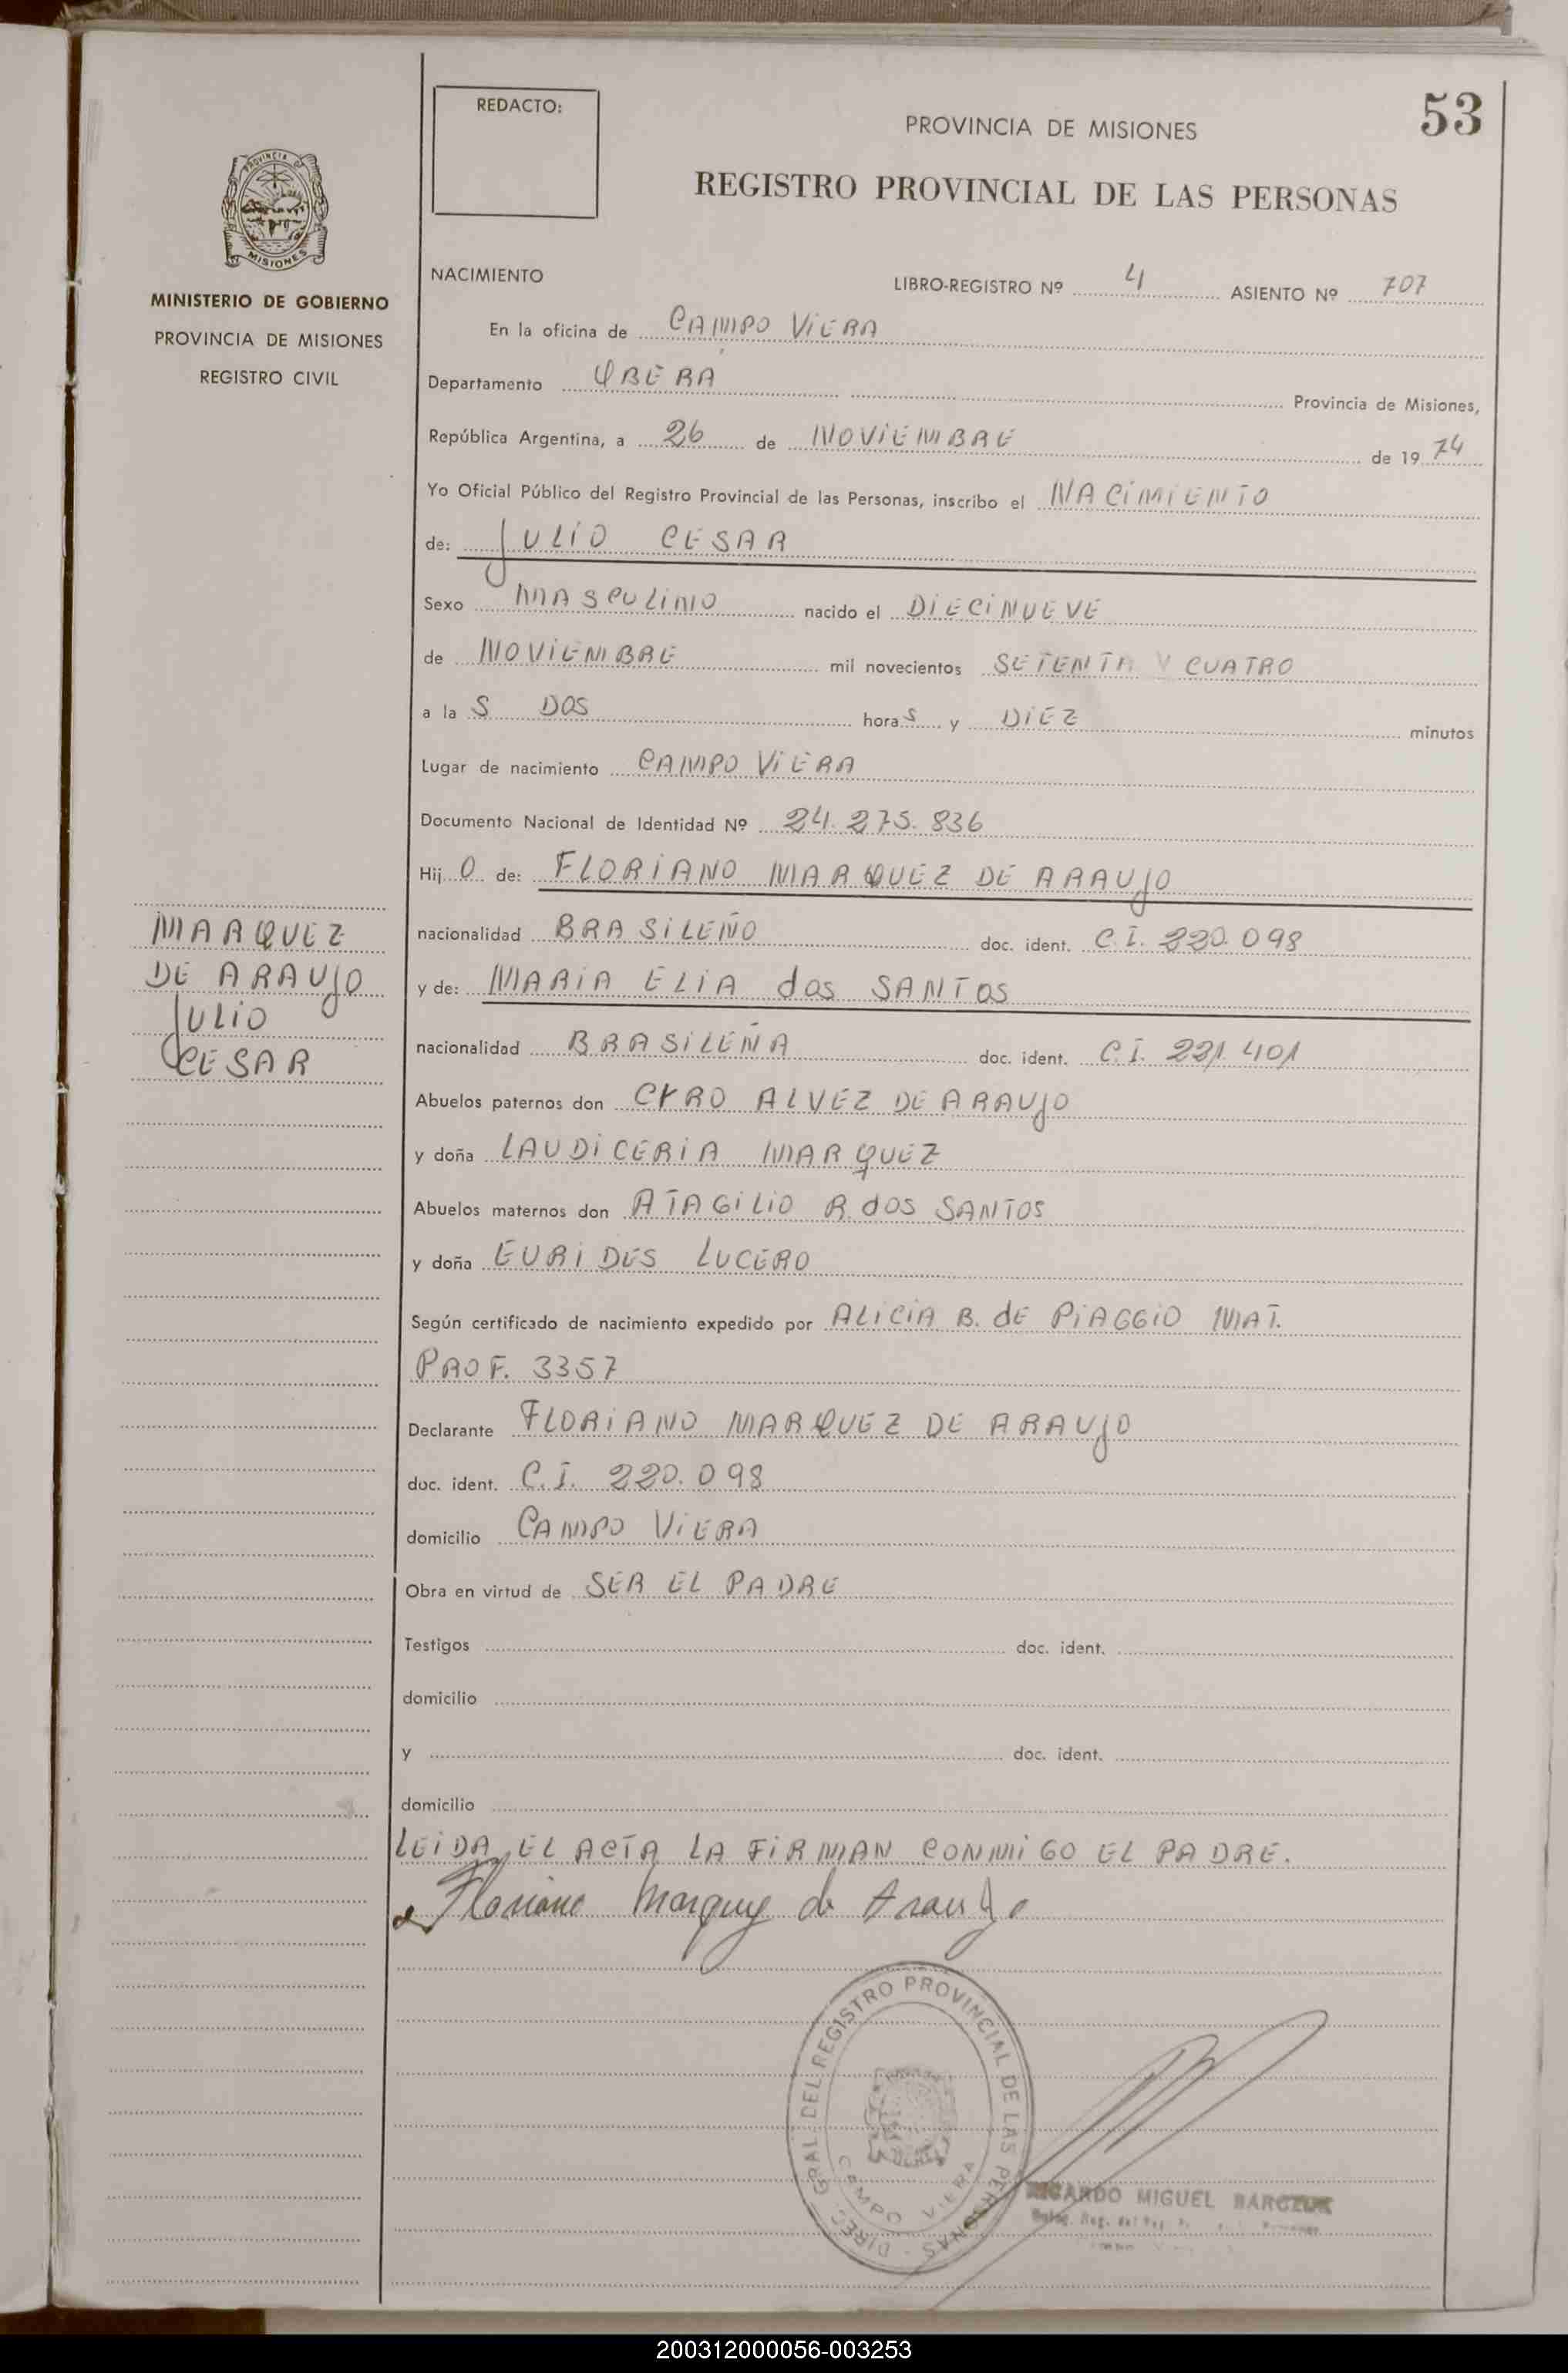 53
REDACTO:
PROVINCIA DE MISIONES
REGISTRO PROVINCIAL DE LAS PERSONAS
PROVINCIA DE
MISIONES
MINISTERIO DE GOBIERNO
PROVINCIA DE MISIONES
REGISTRO CIVIL
NACIMIENTO LIBRO-REGISTRO Nº 4 ASIENTO Nº 707
En la oficina de CAMPO VIERA
Departamento OBERÁ Provincia de Misiones,
República Argentina, a 26 de NOVIEMBRE de 19 74
Yo Oficial Público del Registro Provincial de las Personas, inscribo el NACIMIENTO
de: JULIO CESAR
Sexo MASCULINO nacido el DIECINUEVE
de NOVIEMBRE mil novecientos SETENTA Y CUATRO
a la S DOS hora S y DIEZ minutos
Lugar de nacimiento CAMPO VIERA
Documento Nacional de Identidad Nº 24.275.836
Hij O de: FLORIANO MARQUEZ DE ARAUJO
nacionalidad BRASILEÑO doc. ident. C.I. 220.098
y de: MARIA ELIA dos SANTOS
nacionalidad BRASILEÑA doc. ident. C.I. 221.401
MARQUEZ
DE ARAUJO
JULIO
CESAR
Abuelos paternos don CYRO ALVEZ DE ARAUJO
y doña LAUDICERIA MARQUEZ
Abuelos maternos don ATAGILIO R. dOS SANTOS
y doña EURIDES LUCERO
Según certificado de nacimiento expedido por ALICIA B. dE PIAGGIO MAT.
PROF. 3357
Declarante FLORIANO MARQUEZ DE ARAUJO
doc. ident. C.I. 220.098
domicilio CAMPO VIERA
Obra en virtud de SER EL PADRE
Testigos doc. ident.
domicilio
y doc. ident.
domicilio
LEIDA EL ACTA LA FIRMAN CONMIGO EL PADRE.
Floriano Marquez de Araujo
DIREC. GRAL. DEL REGISTRO PROVINCIAL DE LAS PERSONAS
CAMPO VIERA
RICARDO MIGUEL BARCZUK
200312000056-003253